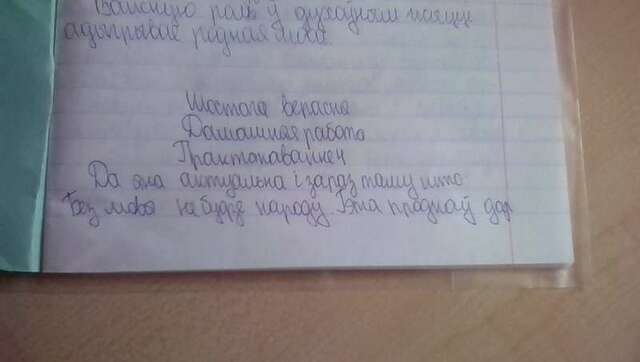 Важную роль ў духоўным жыцці
адыгрывае родная мова.
Шостага верасня
Дамашняя работа
Практыкаванне
Да яна актуальна і зараз таму што
без мовы не будзе народу. Гэта продкаў дар